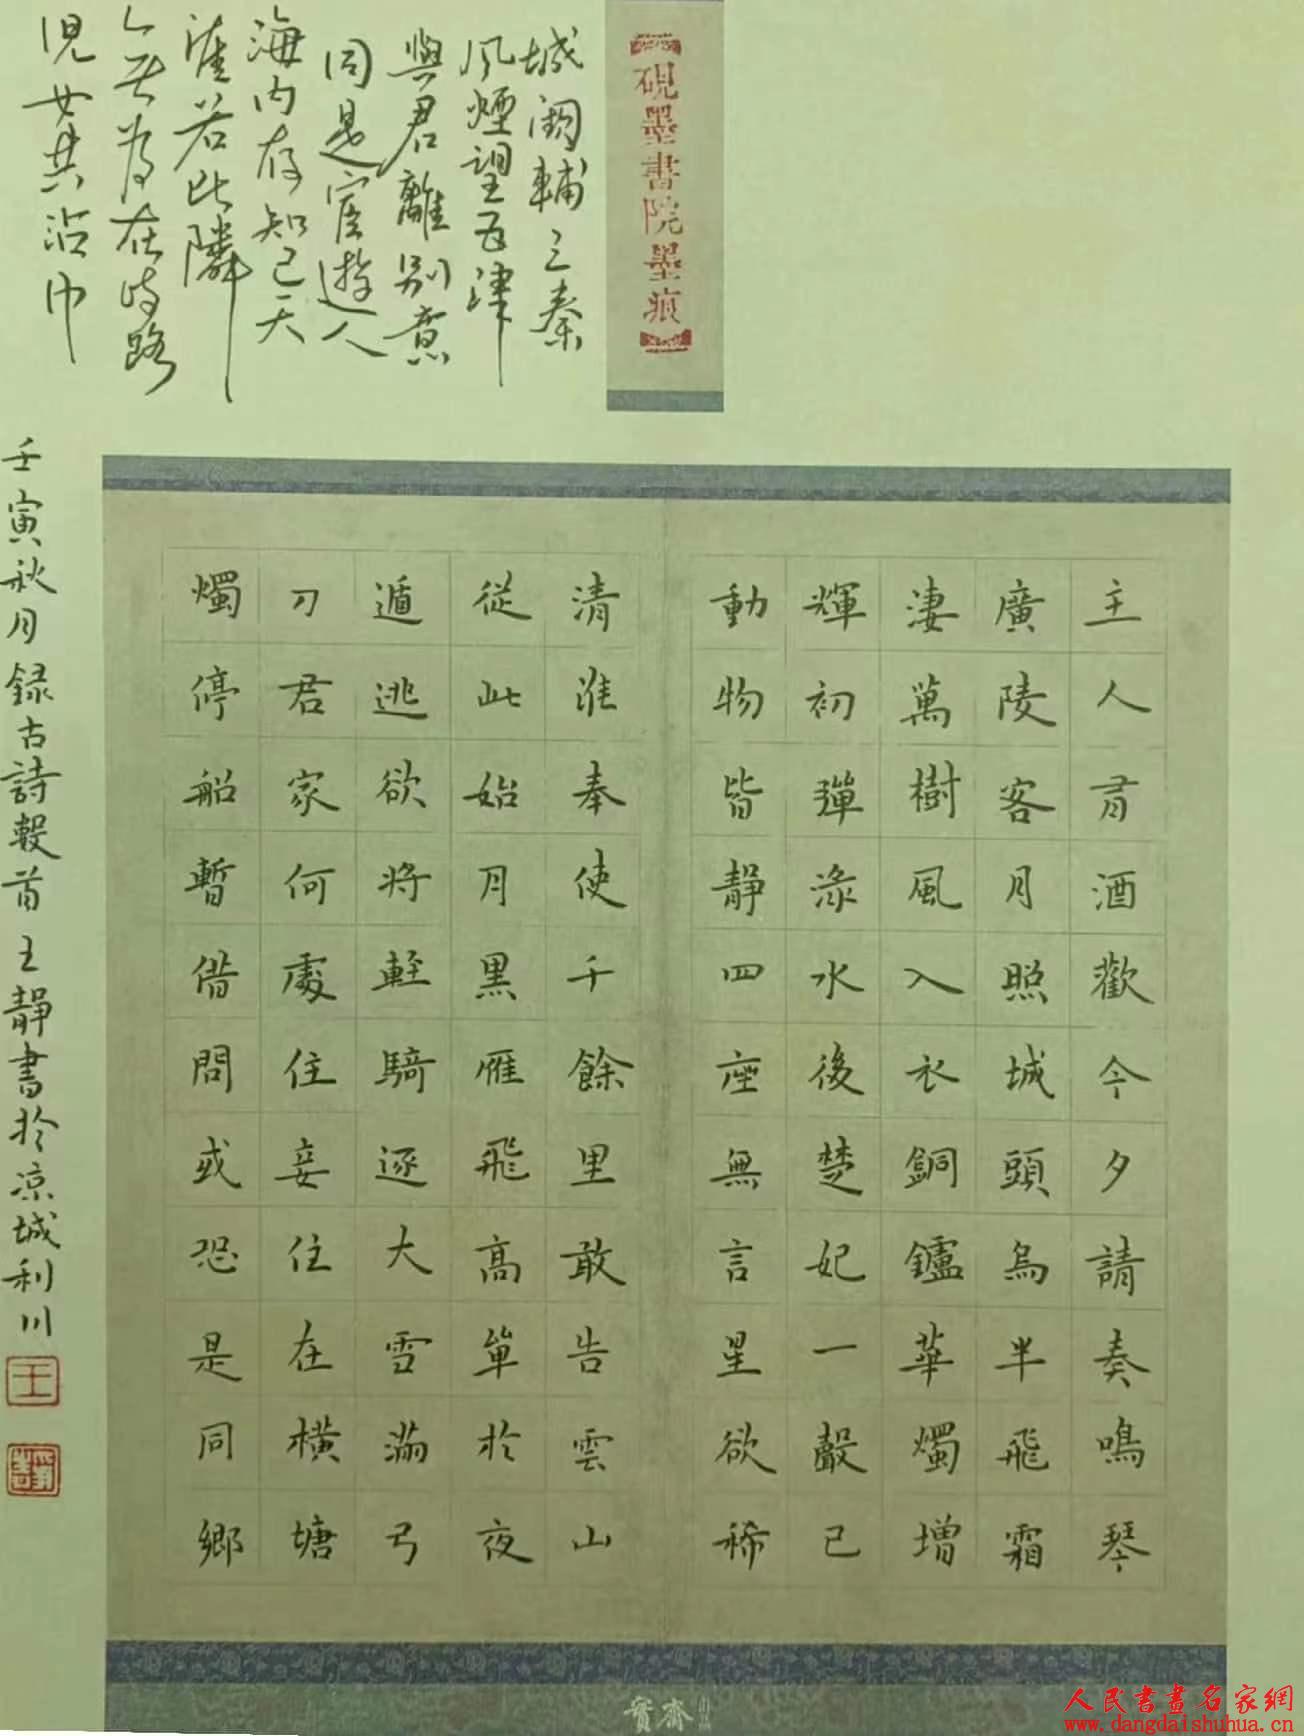 【硯墨書院墨痕】
城闕輔三秦
風煙望五津
與君離別意
同是宦遊人
海内存知己天
涯若比隣
無為在岐路
兒女共沾巾
主人有酒歡今夕請奏鳴琴
廣陵客月照城頭烏半飛霜
淒萬樹風入衣銅鑪華燭增
輝初彈淥水後楚妃一聲已
動物皆靜四座無言星欲稀
清淮奉使千餘里敢告雲山
從此始月黑雁飛高單於夜
遁逃欲將輕騎逐大雪滿弓
刀君家何處住妾住在橫塘
燭停船暫借問或恐是同鄉
壬寅秋月録古詩數首王靜書於涼城利川
王
寶齋
人民書畫名家網
www.dangdaishuhua.cn